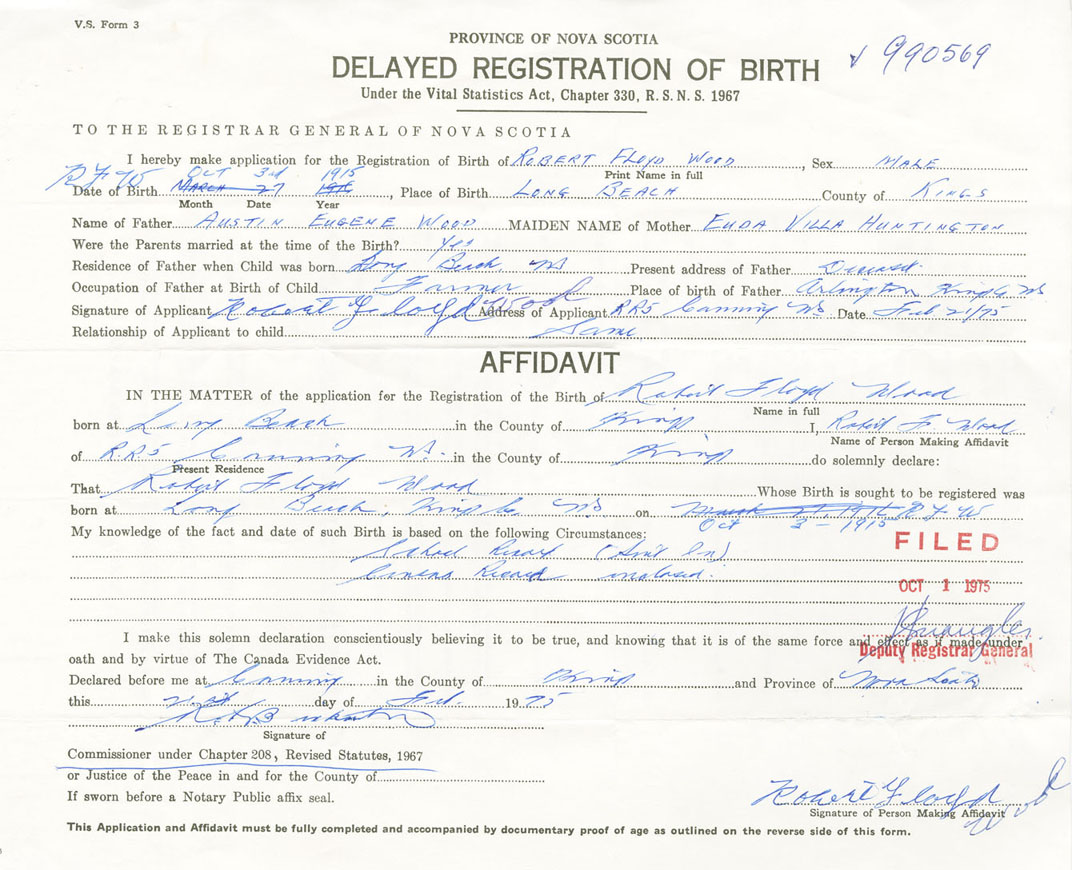 V.S. Form 3
PROVINCE OF NOVA SCOTIA
990569
DELAYED REGISTRATION OF BIRTH
Under the Vital Statistics Act, Chapter 330, R.S.N.S. 1967
TO THE REGISTRAR GENERAL OF NOVA SCOTIA
I hereby make application for the Registration of Birth of ROBERT FLOYD WOOD, Sex MALE
Print Name in full
RFW OCT 3rd 1915
Date of Birth MARCH 27 1916, Place of Birth LONG BEACH County of KINGS
Month Date Year
Name of Father AUSTIN EUGENE WOOD MAIDEN NAME of Mother EUDA VILLA HUNTINGTON
Were the Parents married at the time of the Birth? Yes
Residence of Father when Child was born Long Beach, NS Present address of Father Deceased.
Occupation of Father at Birth of Child Farmer Place of birth of Father Arlington Kings Co NS
Signature of Applicant Robert Floyd Wood Address of Applicant RR5 Canning NS Date Feb 21/75
Relationship of Applicant to child Same
AFFIDAVIT
IN THE MATTER of the application for the Registration of the Birth of Robert Floyd Wood
Name in full
born at Long Beach in the County of Kings I, Robert F Wood
Name of Person Making Affidavit
of RR5 Canning NS. in the County of Kings do solemnly declare:
Present Residence
That Robert Floyd Wood Whose Birth is sought to be registered was
born at Long Beach, Kings Co NS on March 27 1916 RFW
Oct 3 - 1915
My knowledge of the fact and date of such Birth is based on the following Circumstances:
School Record (Sent In)
Census Record enclosed.
FILED
OCT 1 1975
I make this solemn declaration conscientiously believing it to be true, and knowing that it is of the same force and effect as if made under
Deputy Registrar General
oath and by virtue of The Canada Evidence Act.
Declared before me at Canning in the County of Kings and Province of Nova Scotia
this 21st day of Feb. 1975
Signature of
Commissioner under Chapter 208, Revised Statutes, 1967
or Justice of the Peace in and for the County of
If sworn before a Notary Public affix seal.
Robert Floyd Wood
Signature of Person Making Affidavit
This Application and Affidavit must be fully completed and accompanied by documentary proof of age as outlined on the reverse side of this form.